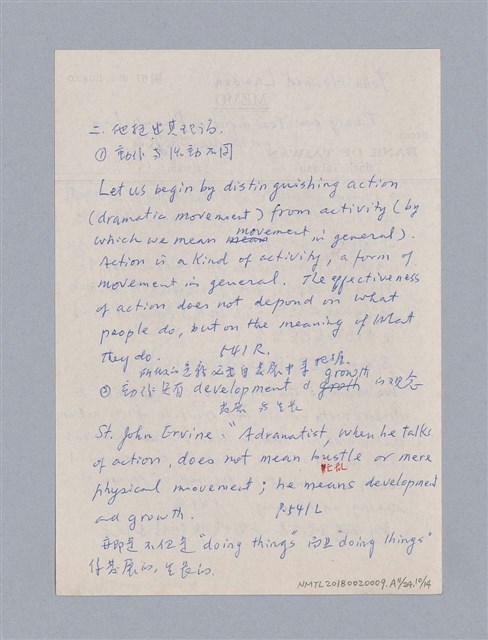 二. 他提出其理論.
① 動作與活動不同
Let us begin by distinguishing action
(dramatic movement) from activity (by
which we mean movement in general).
Action is a kind of activity, a form of
movement in general. The effectiveness
of action does not depend on what
people do, but on the meaning of what
they do. 541 R.
② 動作是有 development & growth 的观念
發展 與 生長
St. John Ervine: "A dramatist, when he talks
of action, does not mean bustle or mere
忙乱
physical movement; he means development
and growth. P.541 L
亦即是 不但是 "doing things" 而且 "doing things"
發展的, 生長的.
NMTL20180020009.A 9/24.10/14